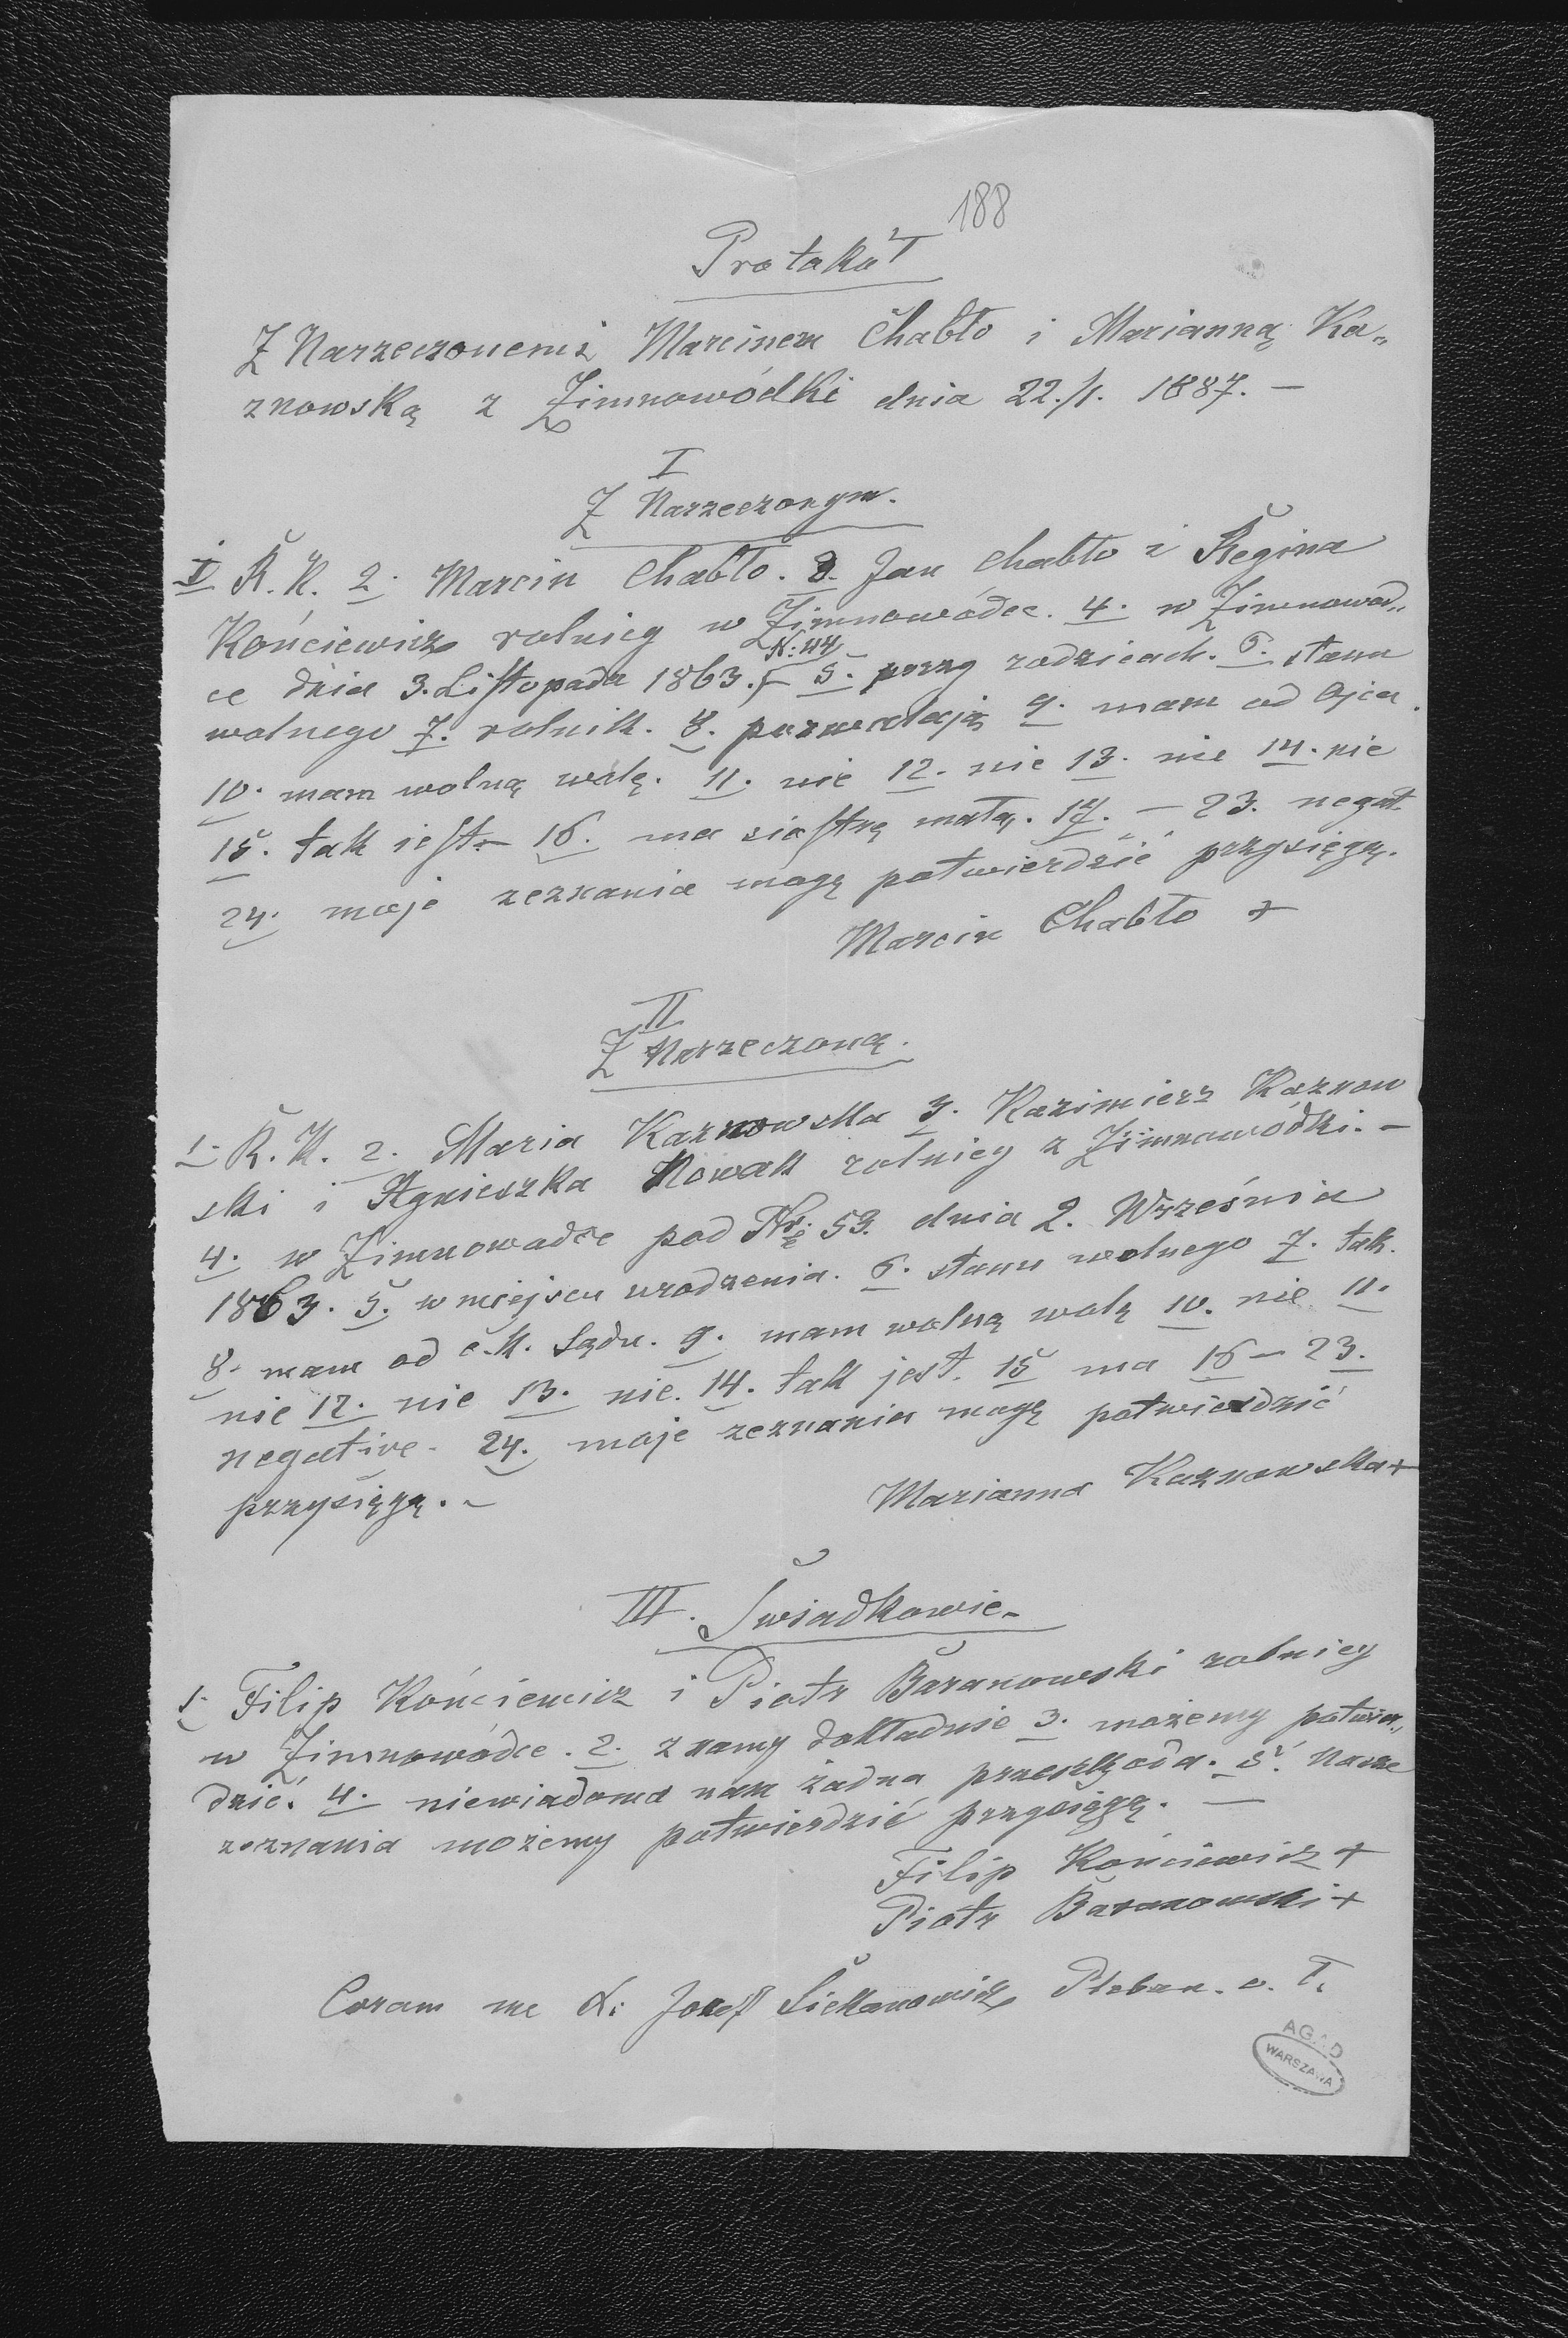 188
Protokół
Z Narzeczonemi Marcinem Chabło i Marianną Ka„
znowską z Zimnowódki dnia 22./1. 1887. —
I
Z Narzeczonym.
1 R. K. 2. Marcin Chabło. 3. Jan Chabło i Regina
Końciewicz rolnicy w Zimnowódce. 4. w Zimnowod„
N: 44
ce dnia 3. Listopada 1863. — 5. przy rodzicach. 6. stanu
wolnego 7. rolnik. 8. pozwalają 9. mam od Ojca.
10. mam wolną wolę. 11. nie 12. nie 13. nie 14. nie
15. tak jest — 16. ma siostrę małą. 17. — 23. negat.
24. moje zeznania mogę potwierdzić przysięgą.
Marcin Chabło +
II
Z Narzeczoną.
1. R. K. 2. Maria Kaznowska 3. Kazimierz Kaznow
ski i Agnieszka Nowak rolnicy z Zimnowódki. —
4. w Zimnowodce pod Nr: 53. dnia 2. Września
1863. 5. w miejscu urodzenia. 6. stanu wolnego 7. tak.
8. mam od c. k. Sądu. 9. mam wolną wolę 10. nie 11.
nie 12. nie 13. nie. 14. tak jest. 15 ma 16 — 23.
negative. 24. moje zeznania mogę potwierdzić
przysięgą. —
Marianna Kaznowska +
III. Świadkowie —
1. Filip Końciewicz i Piotr Baranowski rolnicy
w Zimnowódce. 2. znamy dokładnie 3. możemy potwier„
dzić. 4. niewiadoma nam żadna przeszkoda. 5. Nasze
zeznania możemy potwierdzić przysięgą. —
Filip Końciewicz +
Piotr Baranowski +
Coram me X. Józef Siekanowicz Pleban. o. ł.
AGAD
WARSZAWA